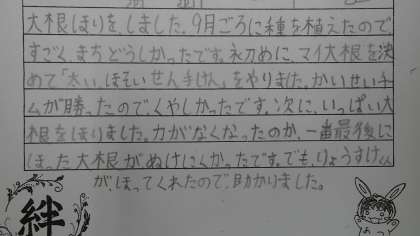 大根ほりを、しました。9月ごろに種を植えたので、
すごく、まちどうしかったです。初めに、マイ大根を決
めて「太い、ほそいせん手けん」をやりました。かいせいチー
ムが勝ったので、くやしかったです。次に、いっぱい大
根をほりました。力がなくなったのか、一番最後に
ほった大根がぬけにくかったです。でも、りょうすけくん
が、ほってくれたので、助かりました。
絆